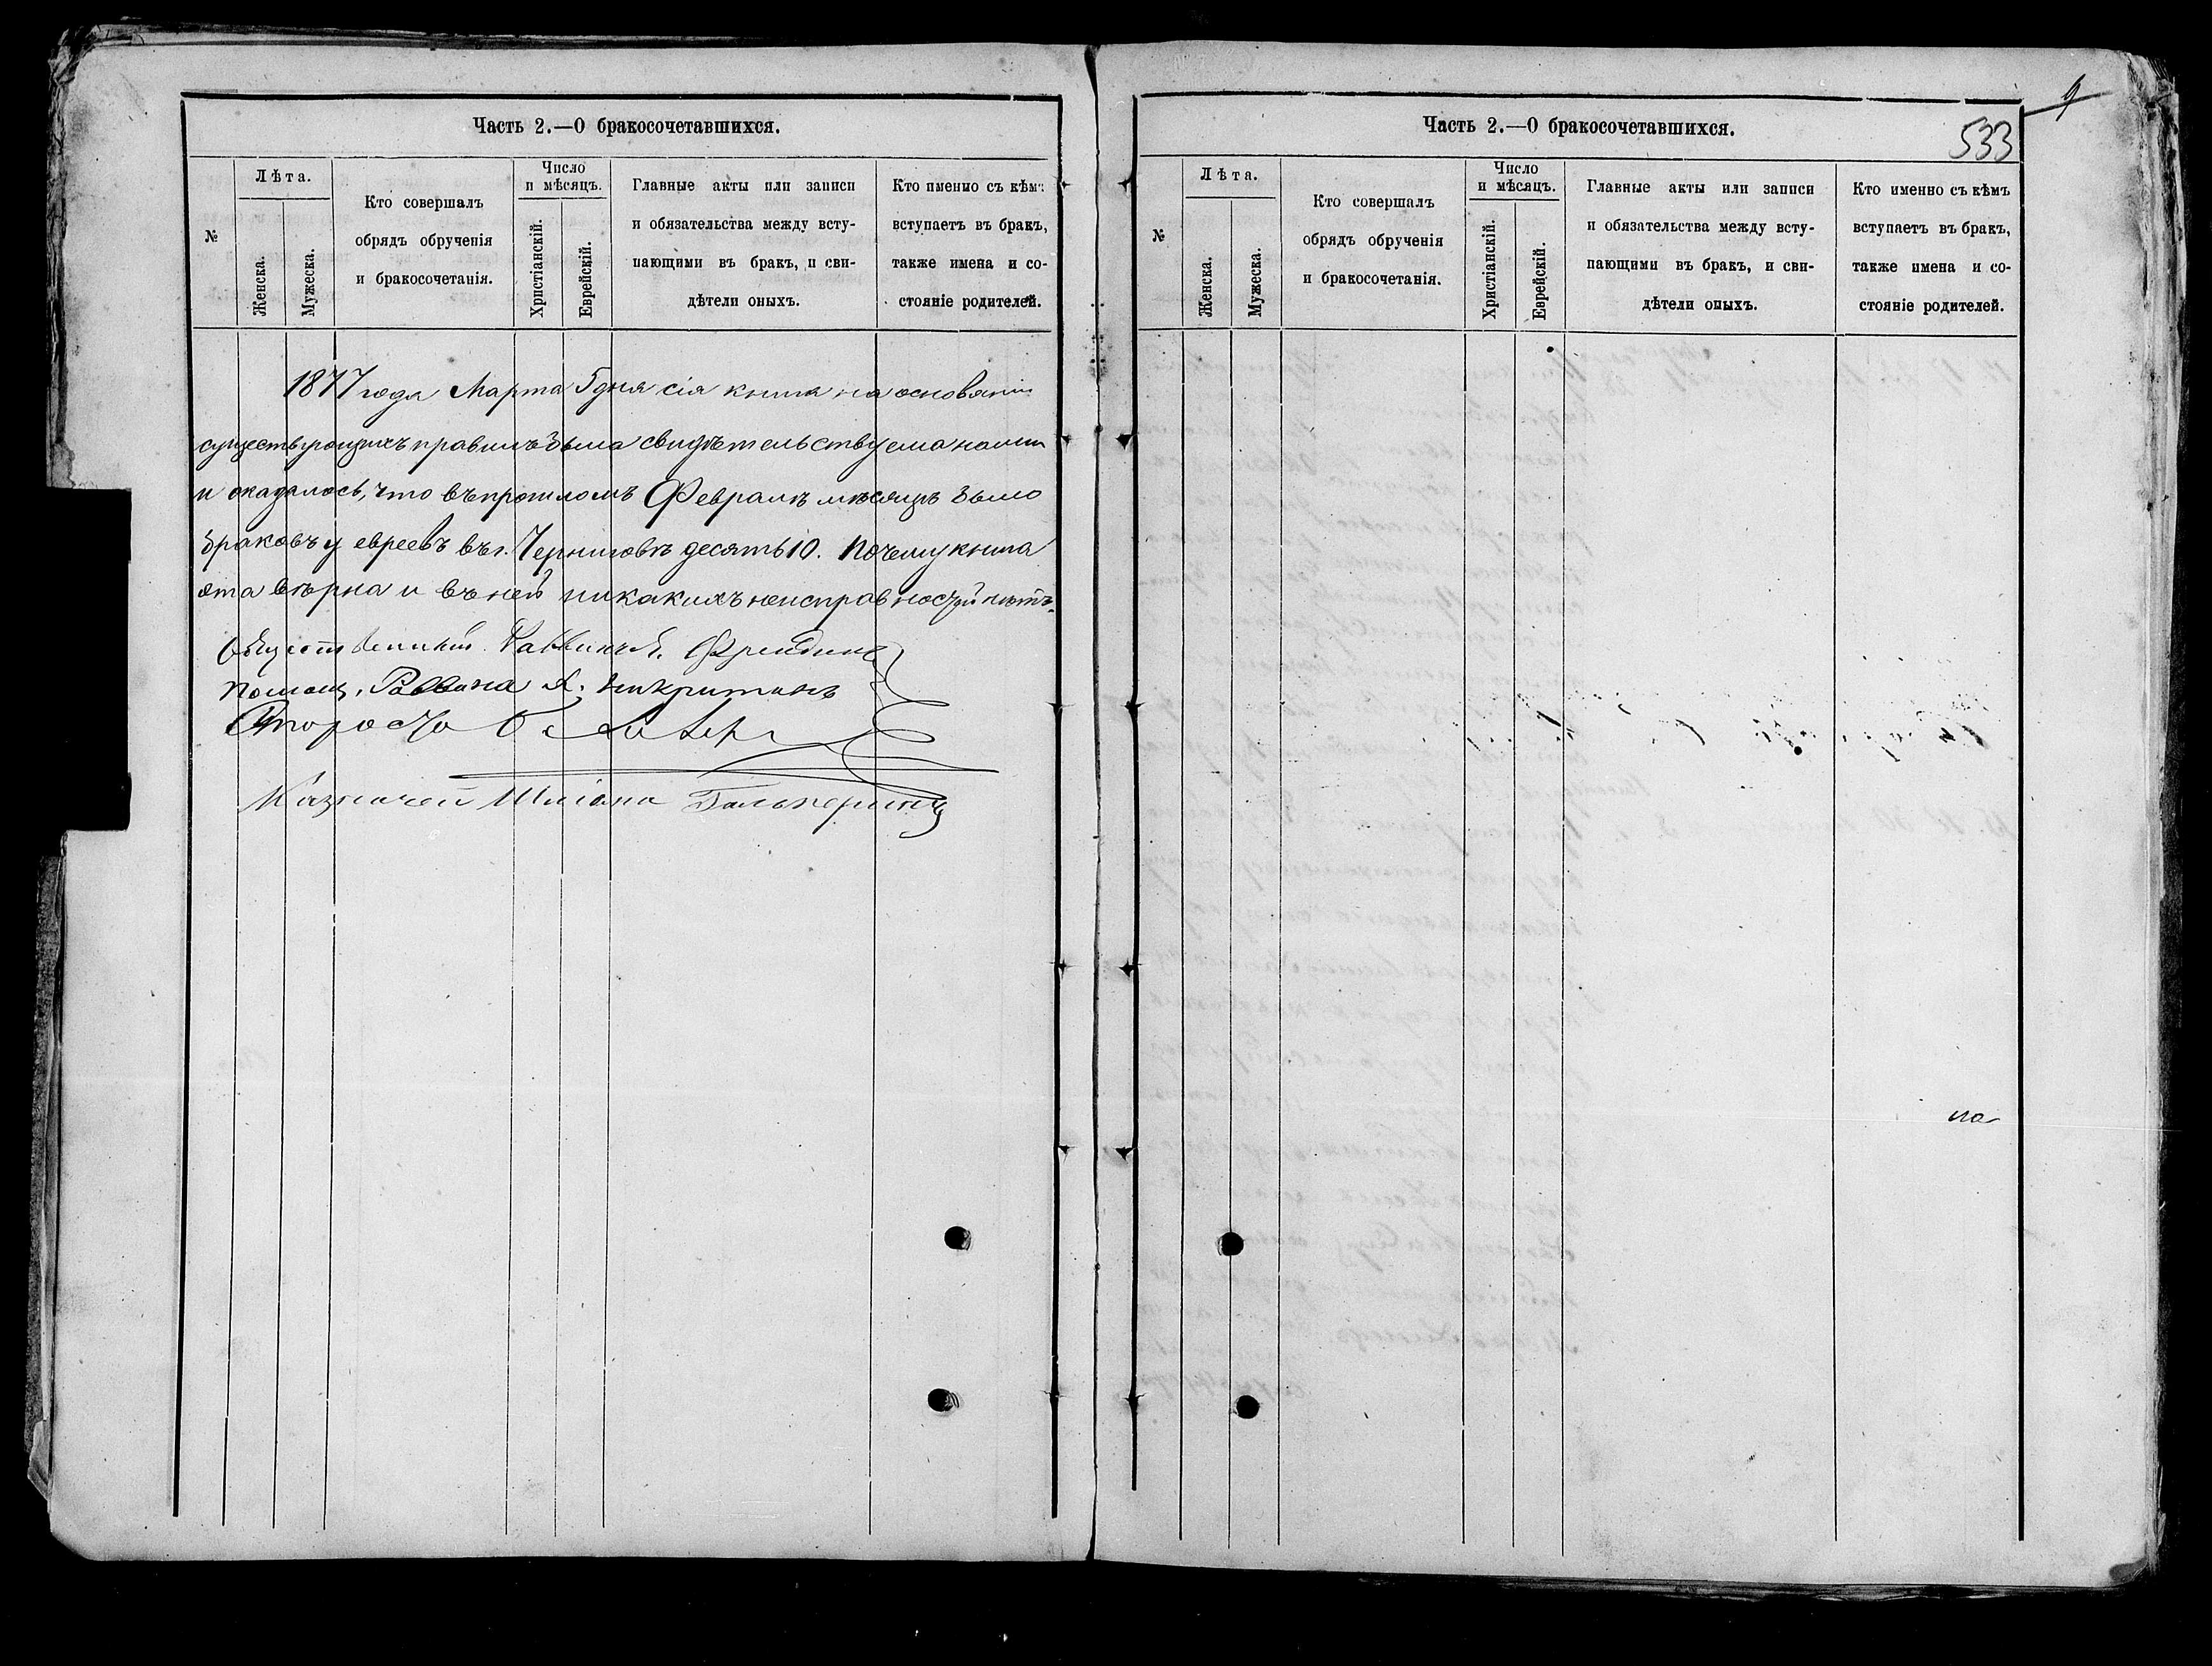 Часть 2.—О бракосочетавшихся.
№
Лѣта.
Женска.
Мужеска.
Кто совершалъ
обрядъ обрученія
и бракосочетанія.
Число
и мѣсяцъ.
Христіанскій.
Еврейскій.
Главные акты или записи
и обязательства между всту-
пающими въ бракъ, и сви-
дѣтели оныхъ.
Кто именно съ кѣмъ
вступаетъ въ бракъ,
также имена и со-
стояніе родителей.
1877 года Марта 5 дня сія книга на основаніи
существующихъ правилъ была свидѣтельствуема нами
и оказалось, что въ прошломъ Февралѣ мѣсяцѣ было
браковъ у евреевъ въ г. Черниговѣ десять 10. Почему книга
эта вѣрна и въ ней никакихъ неисправностей нѣтъ.
Общественный Раввинъ Я. Фрейдинъ
Помощ. Раввина А. Никритинъ
Староста Б.
Казначей Шліома Гальперинъ
9
533
Часть 2.—О бракосочетавшихся.
№
Лѣта.
Женска.
Мужеска.
Кто совершалъ
обрядъ обрученія
и бракосочетанія.
Число
и мѣсяцъ.
Христіанскій.
Еврейскій.
Главные акты или записи
и обязательства между всту-
пающими въ бракъ, и сви-
дѣтели оныхъ.
Кто именно съ кѣмъ
вступаетъ въ бракъ,
также имена и со-
стояніе родителей.
на